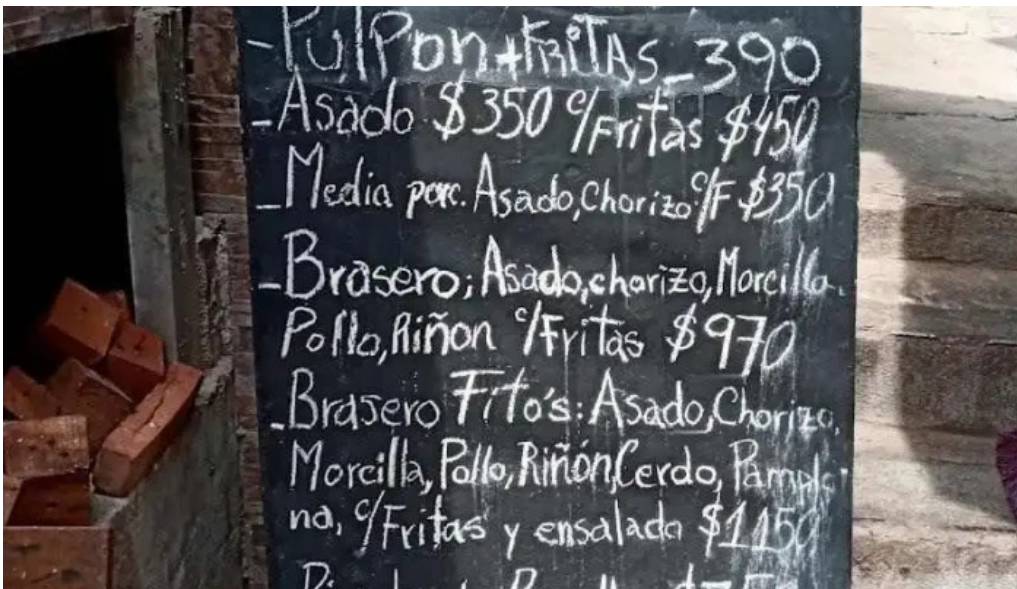 -Pulpon+FRITAS_390
-Asado $350 c/Fritas $450
-Media porc. Asado,Chorizo c/F $350
-Brasero; Asado,chorizo,Morcilla.
Pollo,Riñon c/Fritas $970
-Brasero Fito's: Asado,Chorizo,
Morcilla, Pollo, Riñón,Cerdo, Pamplo-
na, c/Fritas y ensalada $1150